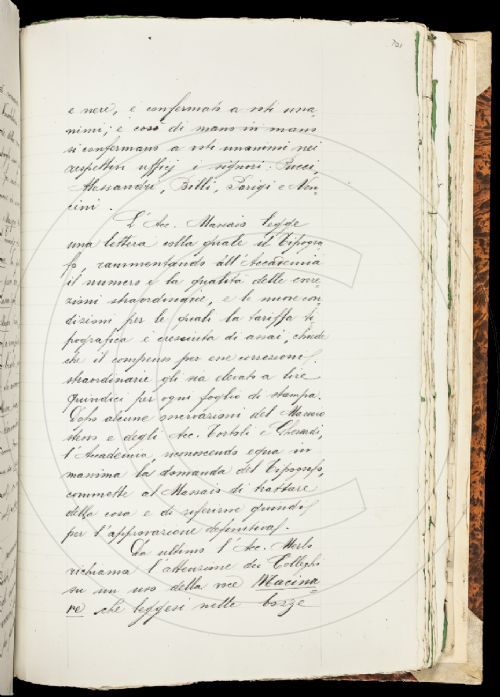 701
e nere, è confermato a voti una-
nimi; e così di mano in mano
si confermano a voti unanimi nei
respettivi ufficj i signori Pucci,
Alessandri, Billi, Parigi e Non-
cini.
L'Acc. Massaio legge
una lettera colla quale il Tipogra-
fo, rammentando all'Accademia
il numero e la qualità delle corre-
zioni straordinarie, e le nuove con-
dizioni per le quali la tariffa ti-
pografica è cresciuta di assai, chiede
che il compenso per ore correzioni
straordinarie gli sia elevato a lire
quindici per ogni foglio di stampa.
Dopo alcune osservazioni del Massaio
stesso e degli Acc. Tortoli e Gherardi,
l'Accademia, riconoscendo equa in
massima la domanda del Tipografo,
commette al Massaio di trattare
della cosa e di riferirne quindi
per l'approvazione definitiva.
Da ultimo l'Acc. Merlo
richiama l'attenzione dei Colleghi
su un uso della voce Macina
re che leggesi nelle bozze